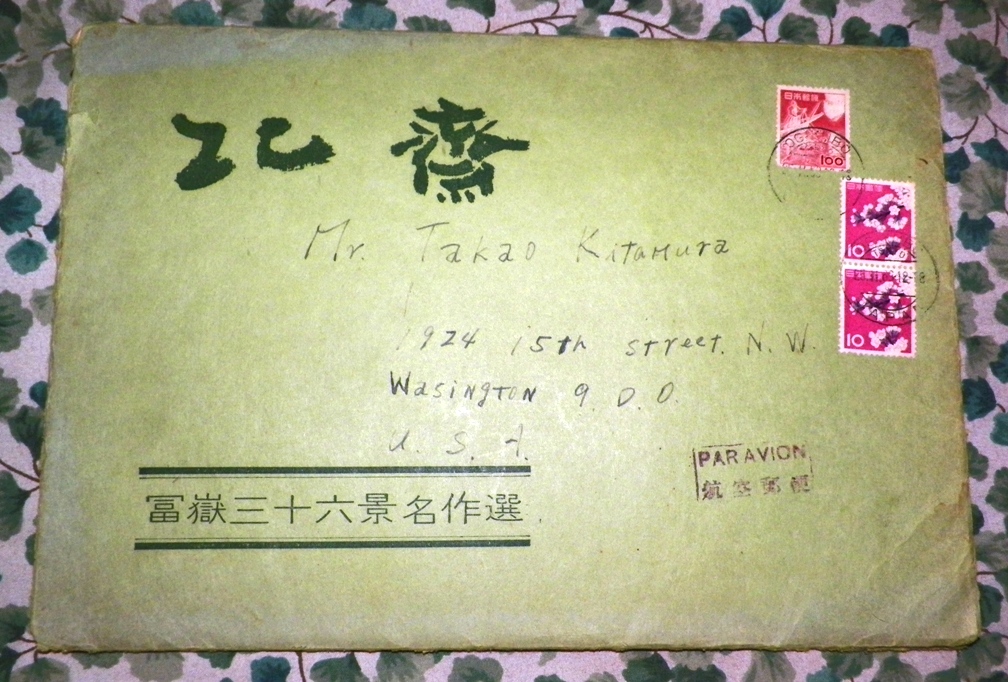 北斎
日本郵便
100
日本郵便
10
日本郵便
10
Mr. Takao Kitamura
1924 15th street. N. W.
Wasington 9. D. D.
U. S. A.
PAR AVION
航空郵便
冨嶽三十六景名作選